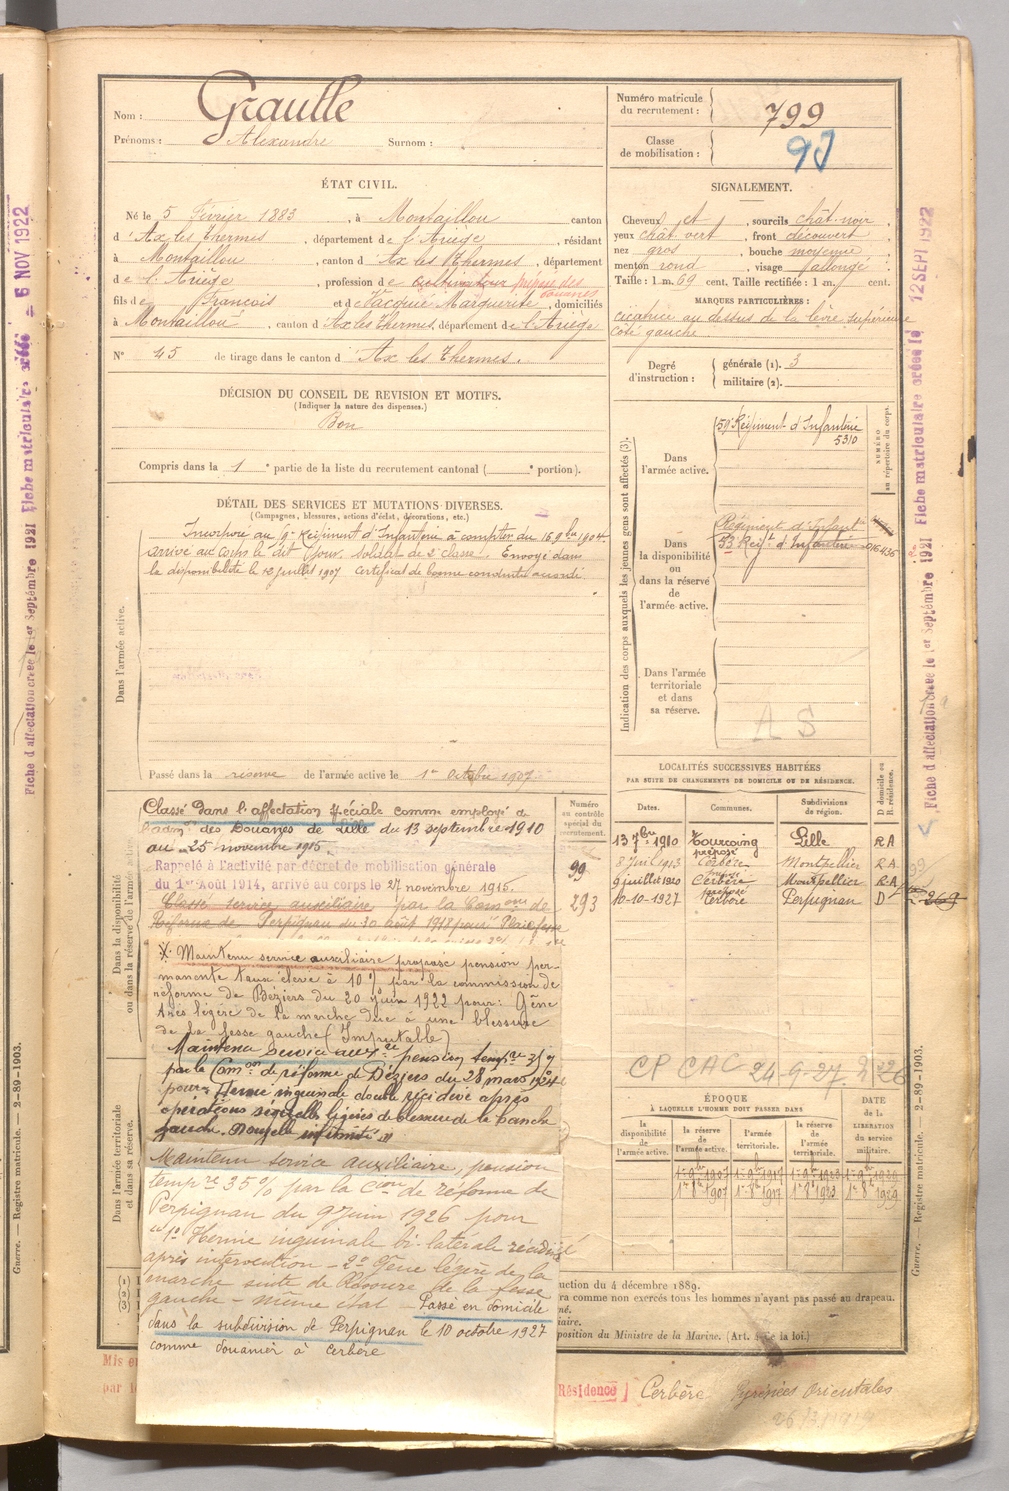 Nom : Graulle
Prénoms : Alexandre Surnom :
Numéro matricule du recrutement : 799
Classe de mobilisation :
ÉTAT CIVIL.
Né le 5 Février 1883, à Montaillou canton
d'Ax les Thermes, département de l'Ariège, résidant
à Montaillou, canton d'Ax les Thermes, département
de l'Ariège, profession de cultivateur préposé des douanes
fils de François et de Jacquie Marguerite, domiciliés
à Montaillou, canton d'Ax les Thermes, département de l'Ariège
N° 45 de tirage dans le canton d'Ax les Thermes.
SIGNALEMENT.
Cheveux et, sourcils chât-noir,
yeux chât. vert, front découvert,
nez gros, bouche moyenne,
menton rond, visage allongé.
Taille : 1 m. 69 cent. Taille rectifiée : 1 m. cent.
MARQUES PARTICULIÈRES :
cicatrice au dessus de la lèvre supérieure
côté gauche
Degré d'instruction : générale (1). 3
militaire (2).
DÉCISION DU CONSEIL DE REVISION ET MOTIFS.
(Indiquer la nature des dispenses.)
Bon
Compris dans la 1e partie de la liste du recrutement cantonal ( e portion).
DÉTAIL DES SERVICES ET MUTATIONS DIVERSES.
(Campagnes, blessures, actions d'éclat, décorations, etc.)
Dans l'armée active.
Incorporé au Régiment d'Infanterie à compter du 16 9bre 1904
arrivé au corps le dit jour. Soldat de 2e classe. Envoyé dans
la disponibilité le 12 juillet 1907 Certificat de bonne conduite accordé.
Passé dans la réserve de l'armée active le 1er Octobre 1907
Indication des corps auxquels les jeunes gens sont affectés (3).
Dans l'armée active.
59e Régiment d'Infanterie
5310
NUMÉRO au répertoire du corps.
Dans la disponibilité ou dans la réserve de l'armée active.
Régiment d'Infant
53 Regt d'Infanterie
Dans l'armée territoriale et dans sa réserve.
A S
Dans la disponibilité ou dans la réserve de l'armée active.
Classé dans l'affectation spéciale comme employé de
l'admon des Douanes de Lille du 13 septembre 1910
au 25 novembre 1915.
Rappelé à l'activité par décret de mobilisation générale
du 1er Août 1914, arrivé au corps le 27 novembre 1915.
Classé service auxiliaire par la Comon de
Réforme de Perpignan du 30 août 1918 pour Plaie fesse
X Maintenu service auxiliaire proposé pension per-
manente taux élevé à 10% par la commission de
réforme de Béziers du 20 juin 1922 pour : Gêne
très légère de la marche due à une blessure
de la fesse gauche (Imputable)
Maintenu service auxre pension tempre 35%
par la Comon de réforme de Béziers du 28 mars 1924
pour Hernie inguinale double récidivé après
opérations séquelles légères de blessure de la hanche
gauche.
Maintenu service auxiliaire, pension
tempre 35% par la Cion de réforme de
Perpignan du 9 juin 1926 pour
"1° Hernie inguinale bi-latérale récidivé
après intervention - 2° Gêne légère de la
marche suite de blessure de la fesse
gauche - même état - Passé en domicile
dans la subdivision de Perpignan le 10 octobre 1927
comme douanier à Cerbère
Dans l'armée territoriale et dans sa réserve.
Numéro au contrôle spécial du recrutement.
99
293
LOCALITÉS SUCCESSIVES HABITÉES
PAR SUITE DE CHANGEMENTS DE DOMICILE OU DE RÉSIDENCE.
Dates. Communes. Subdivisions de région. D domicile ou R résidence.
13 7bre 1910 Tourcoing Lille R A
8 1913 préposé Cerbère Montpellier R A
9 juillet 1920 Cerbère Montpellier R A
10-10-1927 préposé Cerbère Perpignan D
CP CAC 24-9-27.
ÉPOQUE
À LAQUELLE L'HOMME DOIT PASSER DANS
la disponibilité de l'armée active. la réserve de l'armée active. l'armée territoriale. la réserve de l'armée territoriale.
DATE de la LIBÉRATION du service militaire.
uction du 4 décembre 1889.
ra comme non exercés tous les hommes n'ayant pas passé au drapeau.
né.
iaire.
position du Ministre de la Marine. (Art. de la loi.)
(1)
(2)
(3)
Mis en
par
Résidence Cerbère Pyrénées Orientales
Guerre. — Registre matricule. — 2-89-1903.
Guerre. — Registre matricule. — 2-89-1903.
Fiche d'affectation créée le 1er Septembre 1921 Fiche matriculaire créée le 6 NOV 1922
Fiche d'affectation créée le 1er Septembre 1921 Fiche matriculaire créée le 12 SEPT 1922